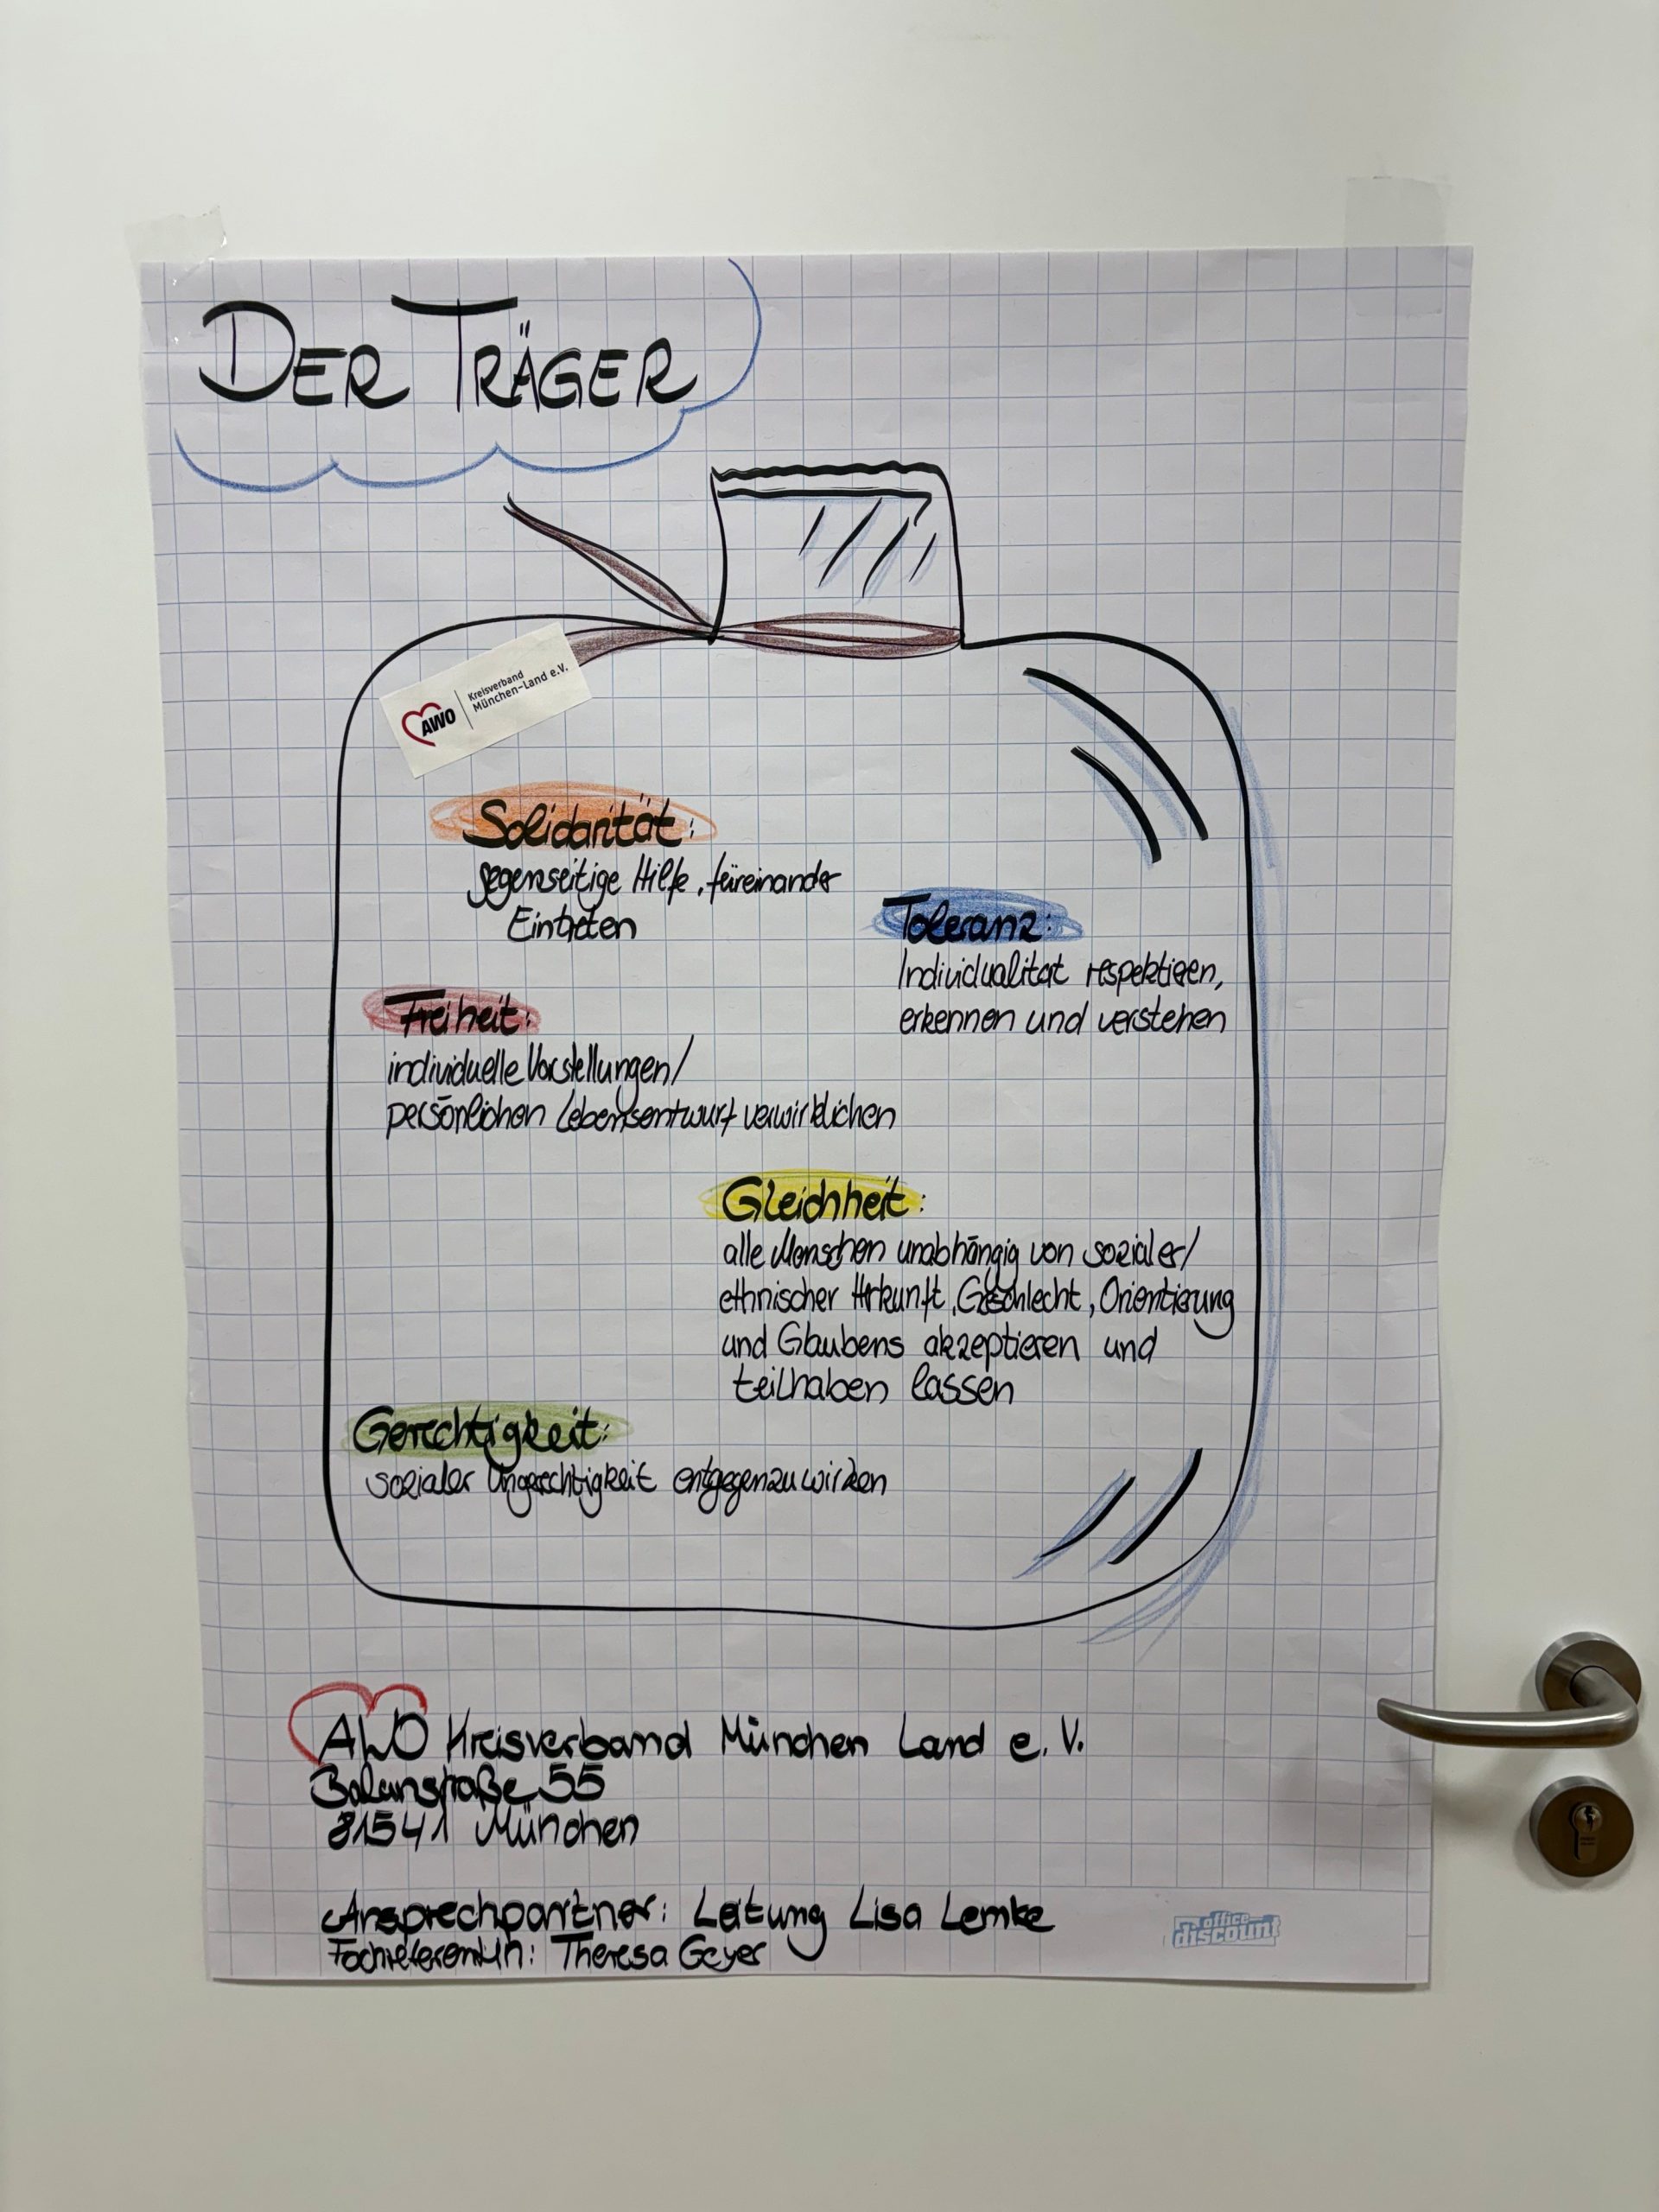 DER TRÄGER
AWO
Kreisverband
München-Land e.V.
Solidarität:
gegenseitige Hilfe, füreinander
Eintreten
Toleranz:
Individualität respektieren,
erkennen und verstehen
Freiheit:
individuelle Vorstellungen/
persönlichen Lebensentwurf verwirklichen
Gleichheit:
alle Menschen unabhängig von sozialer/
ethnischer Herkunft, Geschlecht, Orientierung
und Glaubens akzeptieren und
teilhaben lassen
Gerechtigkeit:
sozialer Ungerechtigkeit entgegenzuwirken
AWO Kreisverband München Land e.V.
Balanstraße 55
81541 München
Ansprechpartner: Leitung Lisa Lemke
Fachreferentin: Theresa Geyer
office
discount